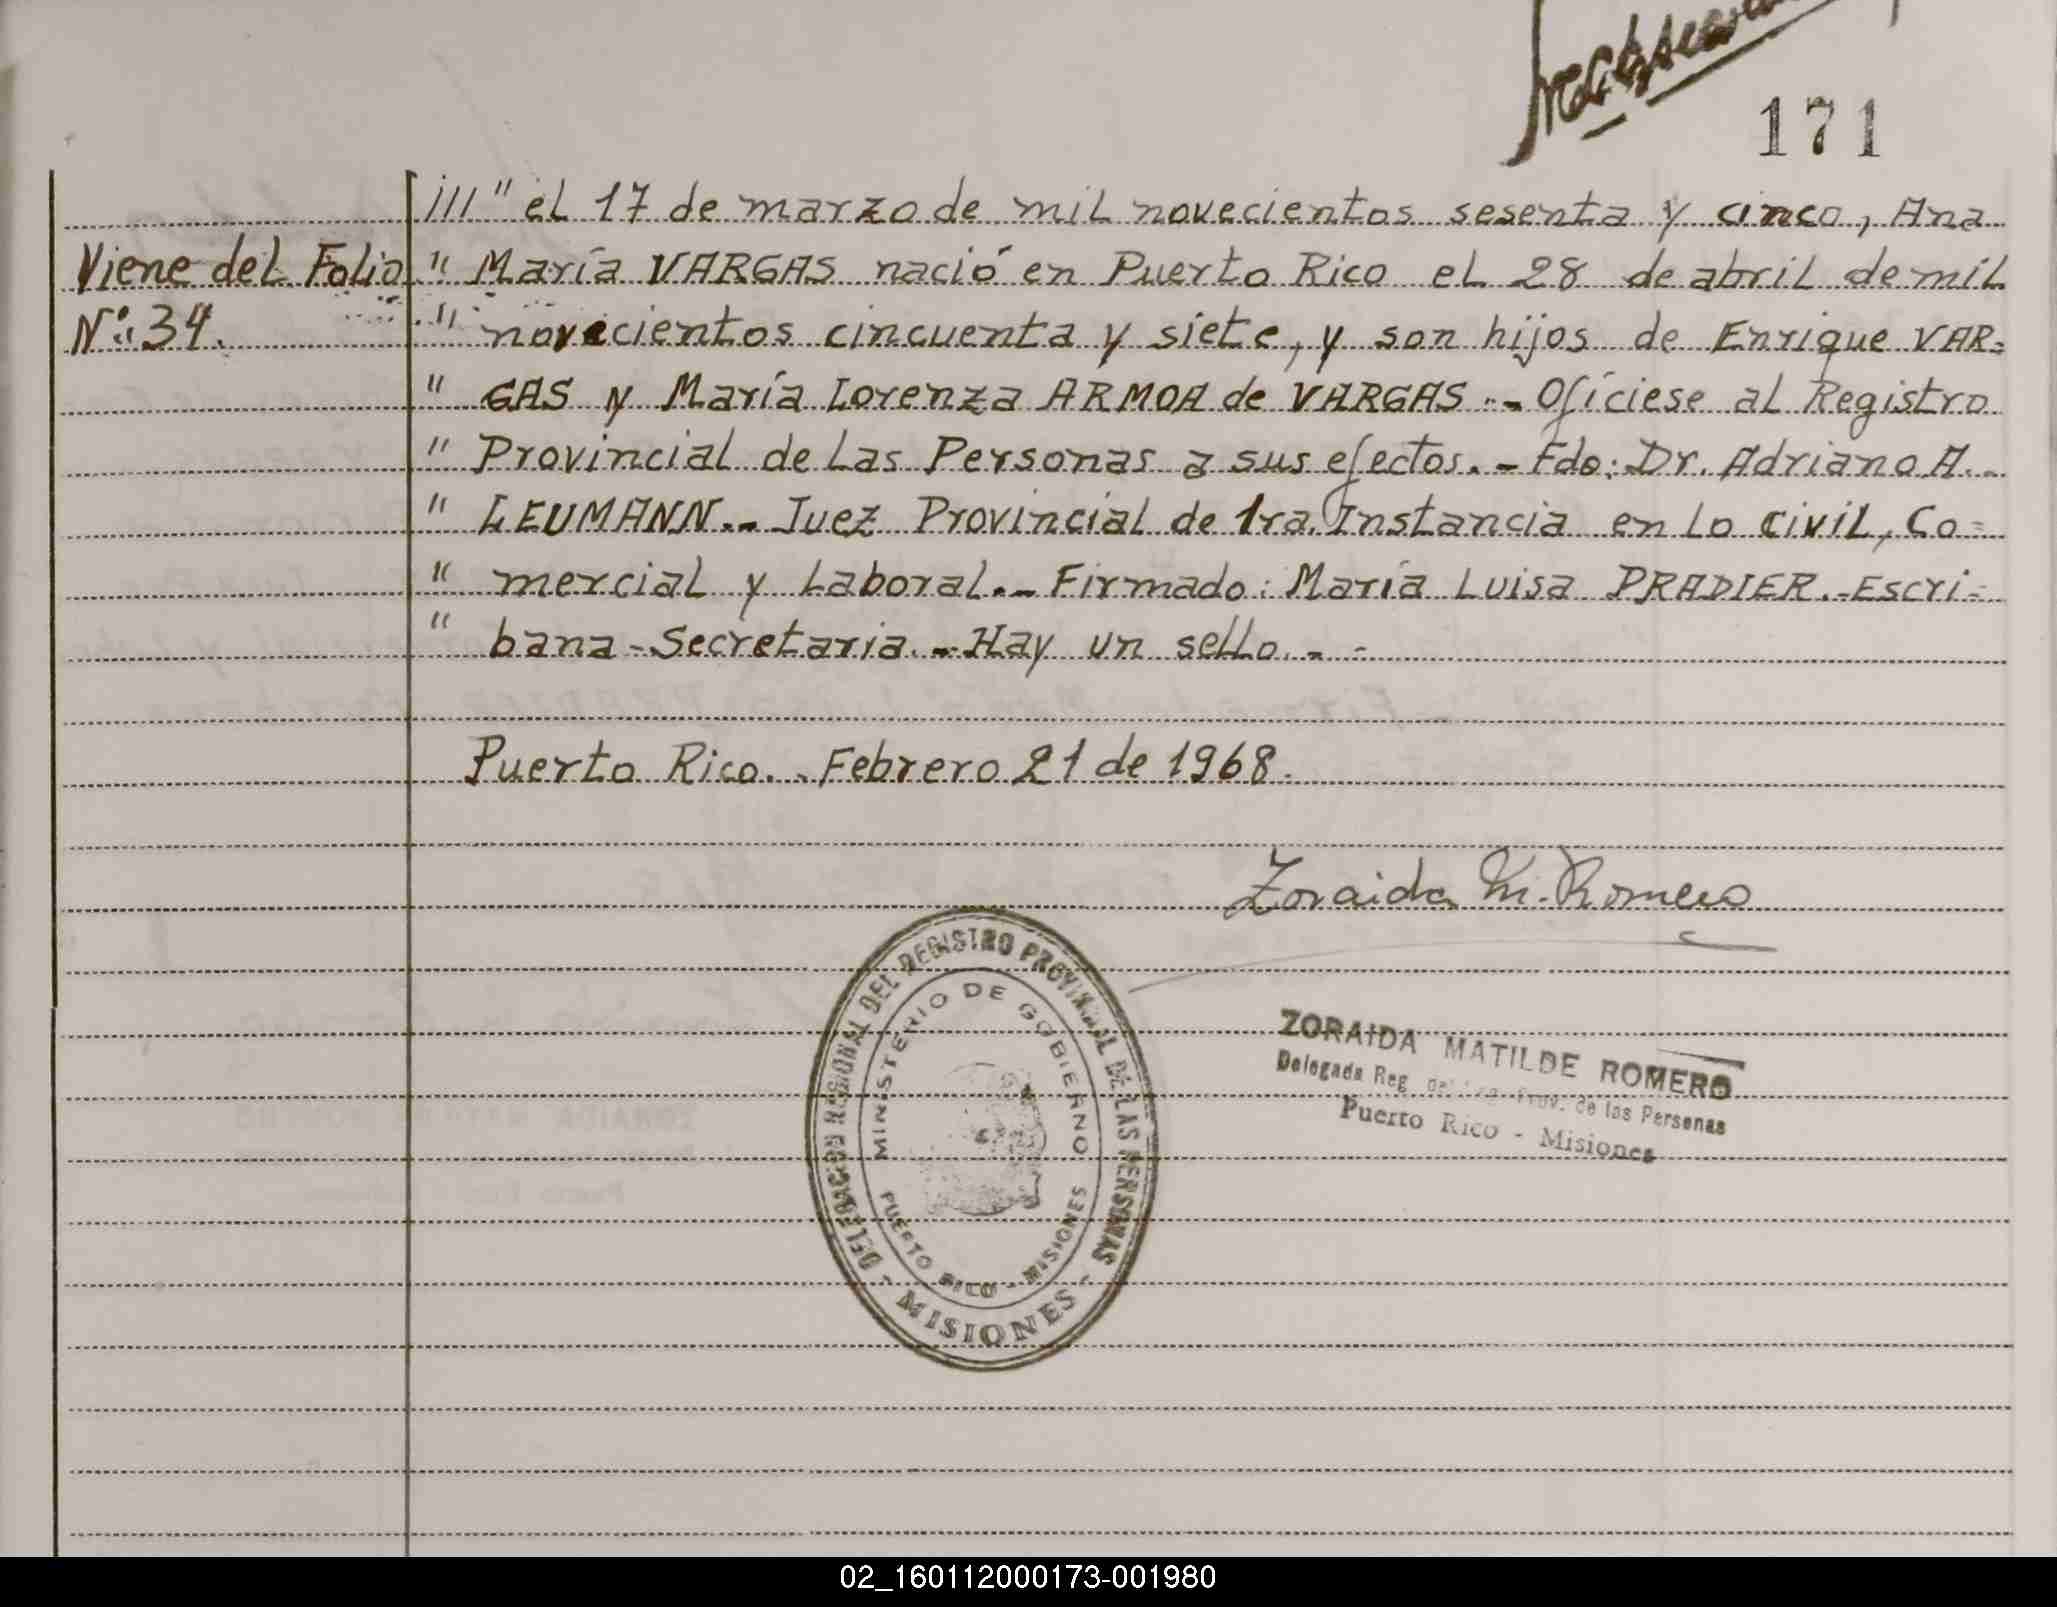 171
///" el 17 de marzo de mil novecientos sesenta y cinco, Ana
Viene del Folio
Nº 34.
" María VARGAS nació en Puerto Rico el 28 de abril de mil
" novecientos cincuenta y siete, y son hijos de Enrique VAR=
" GAS y María Lorenza ARMOA de VARGAS.- Ofíciese al Registro
" Provincial de Las Personas a sus efectos.- Fdo: Dr. Adriano A.-
" LEUMANN.- Juez Provincial de 1ra. Instancia en Lo Civil, Co=
" mercial y Laboral.- Firmado: María Luisa PRADIER.-Escri=
" bana-Secretaria.-Hay un sello.- -
Puerto Rico.- Febrero 21 de 1968.
Zoraida M. Romero
ZORAIDA MATILDE ROMERO
Delegada Reg. del Reg. Prov. de las Personas
Puerto Rico - Misiones
DELEGACION REGIONAL DEL REGISTRO PROVINCIAL DE LAS PERSONAS
- MISIONES -
MINISTERIO DE GOBIERNO
PUERTO RICO - MISIONES
02_160112000173-001980